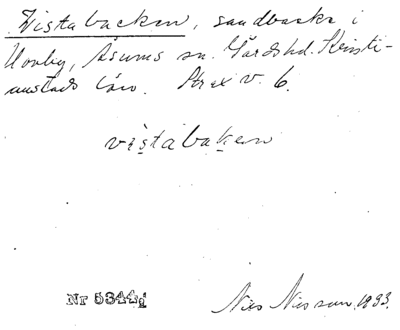 Vistabacken, sandbacke i
Movby, Åsums sn. Gärds hd. Kristi-
anstads län. Strax v. 6.
vistabaken
Nr 5344 d
Nils Nilsson. 1933.